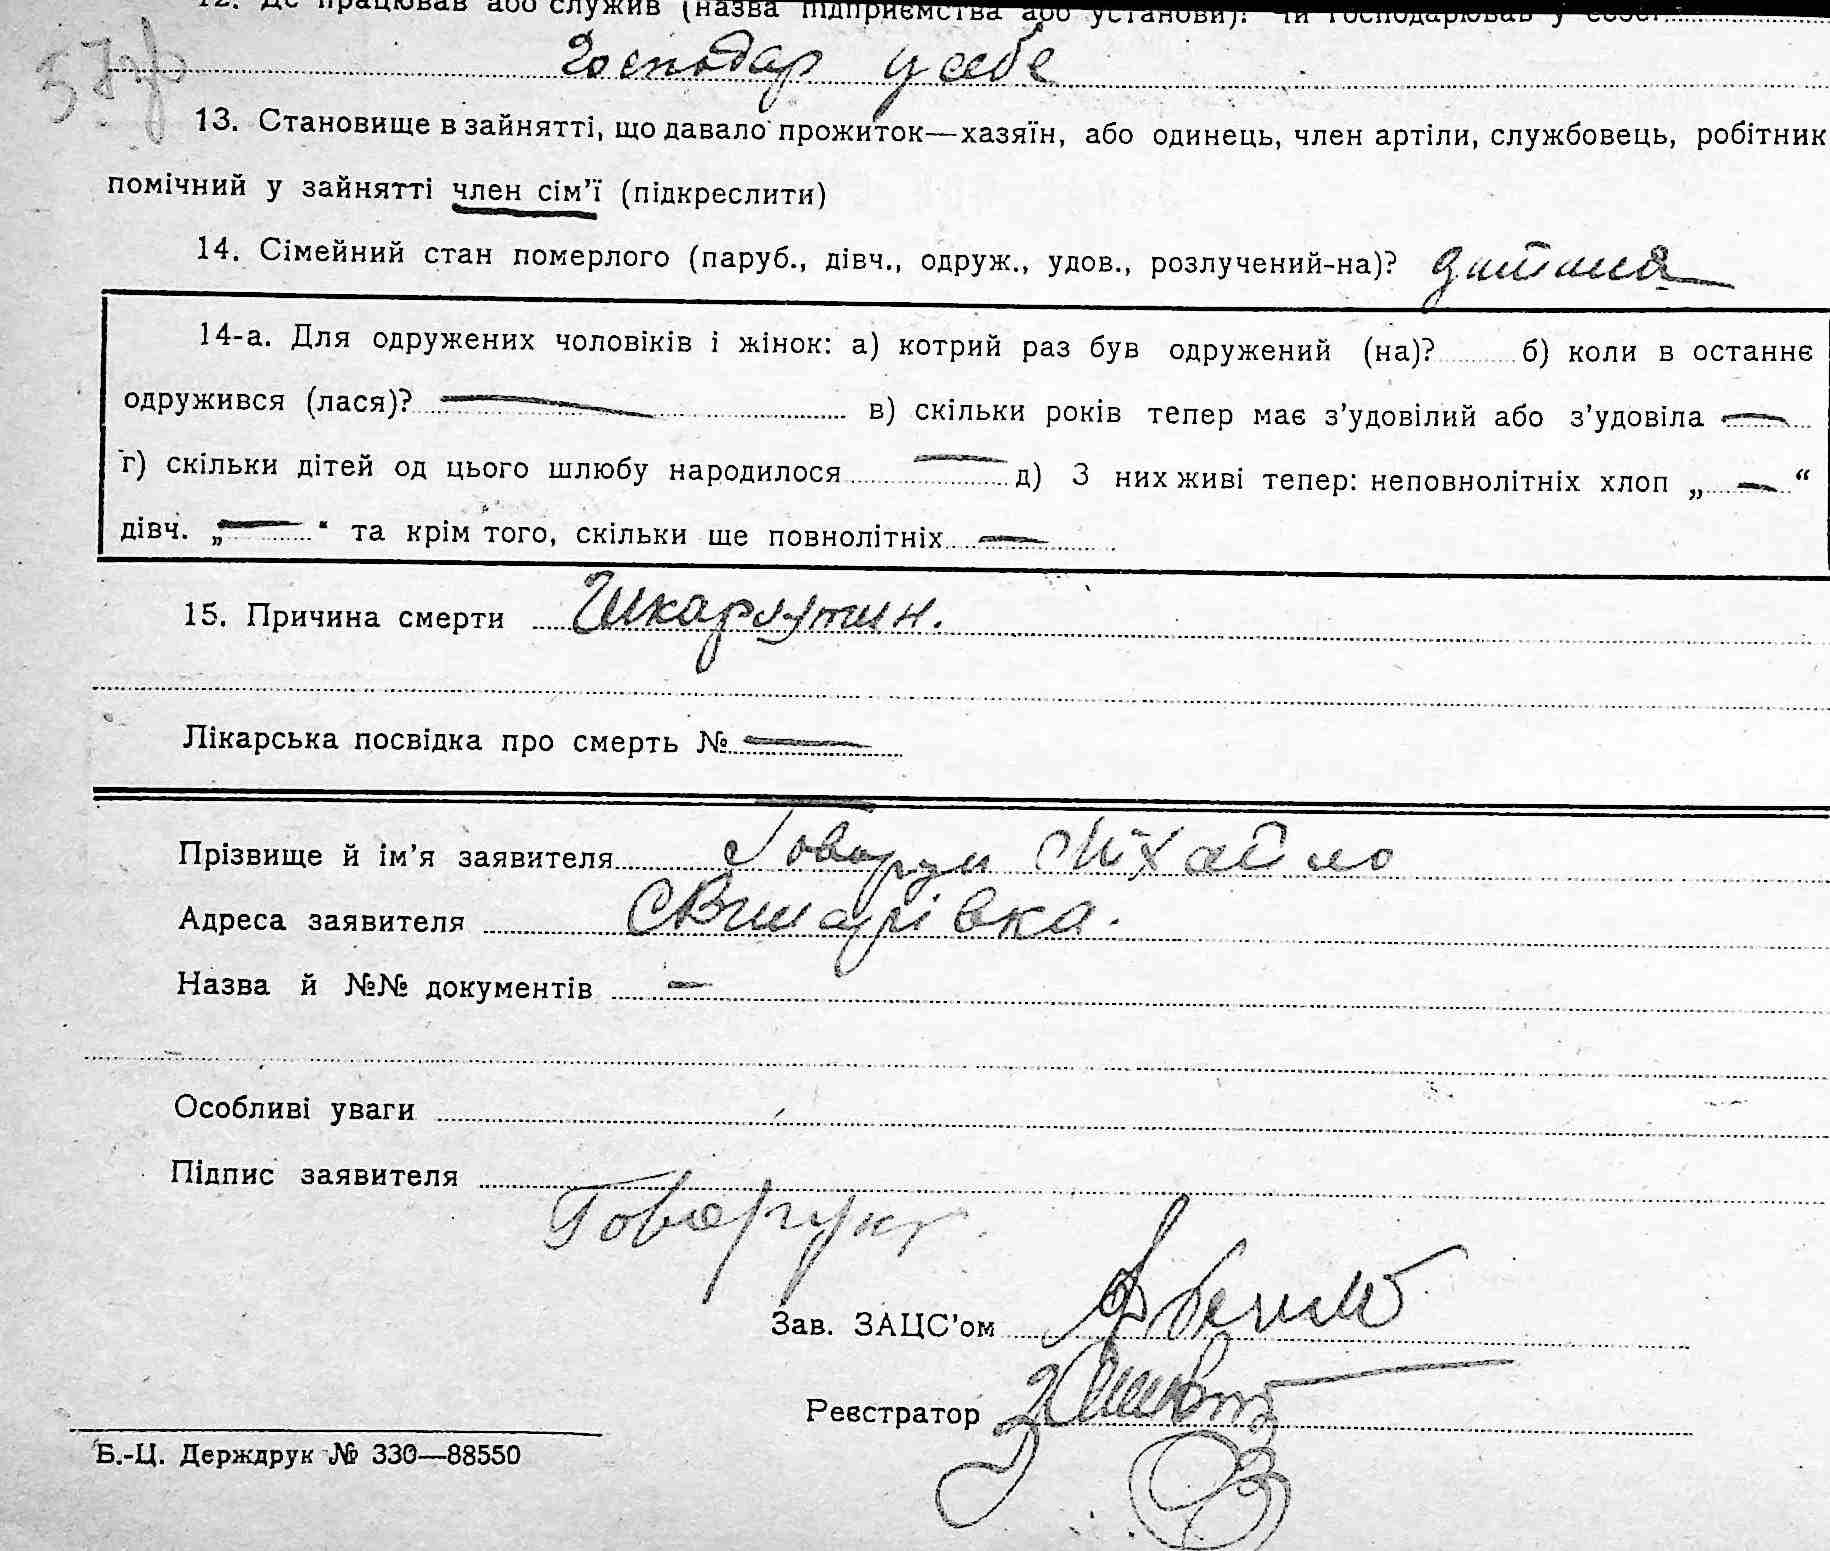 12. Де працював або служив (назва підприємства або установи)? Чи господарював у себе?
Господар у себе
13. Становище в зайнятті, що давало прожиток—хазяїн, або одинець, член артіли, службовець, робітник
помічний у зайнятті член сім'ї (підкреслити)
14. Сімейний стан померлого (паруб., дівч., одруж., удов., розлучений-на)? дитина
14-а. Для одружених чоловіків і жінок: а) котрий раз був одружений (на)? б) коли в останнє
одружився (лася)? — в) скільки років тепер має з'удовілий або з'удовіла —
г) скільки дітей од цього шлюбу народилося — д) З них живі тепер: неповнолітніх хлоп „ — “
дівч. „ — “ та крім того, скільки ше повнолітніх —
15. Причина смерти Шкарлятин.
Лікарська посвідка про смерть № —
Прізвище й ім'я заявителя Говорун Міхайло
Адреса заявителя Свинарівка.
Назва й №№ документів —
Особливі уваги
Підпис заявителя
Зав. ЗАЦС'ом
Реєстратор
Б.-Ц. Держдрук № 330—88550